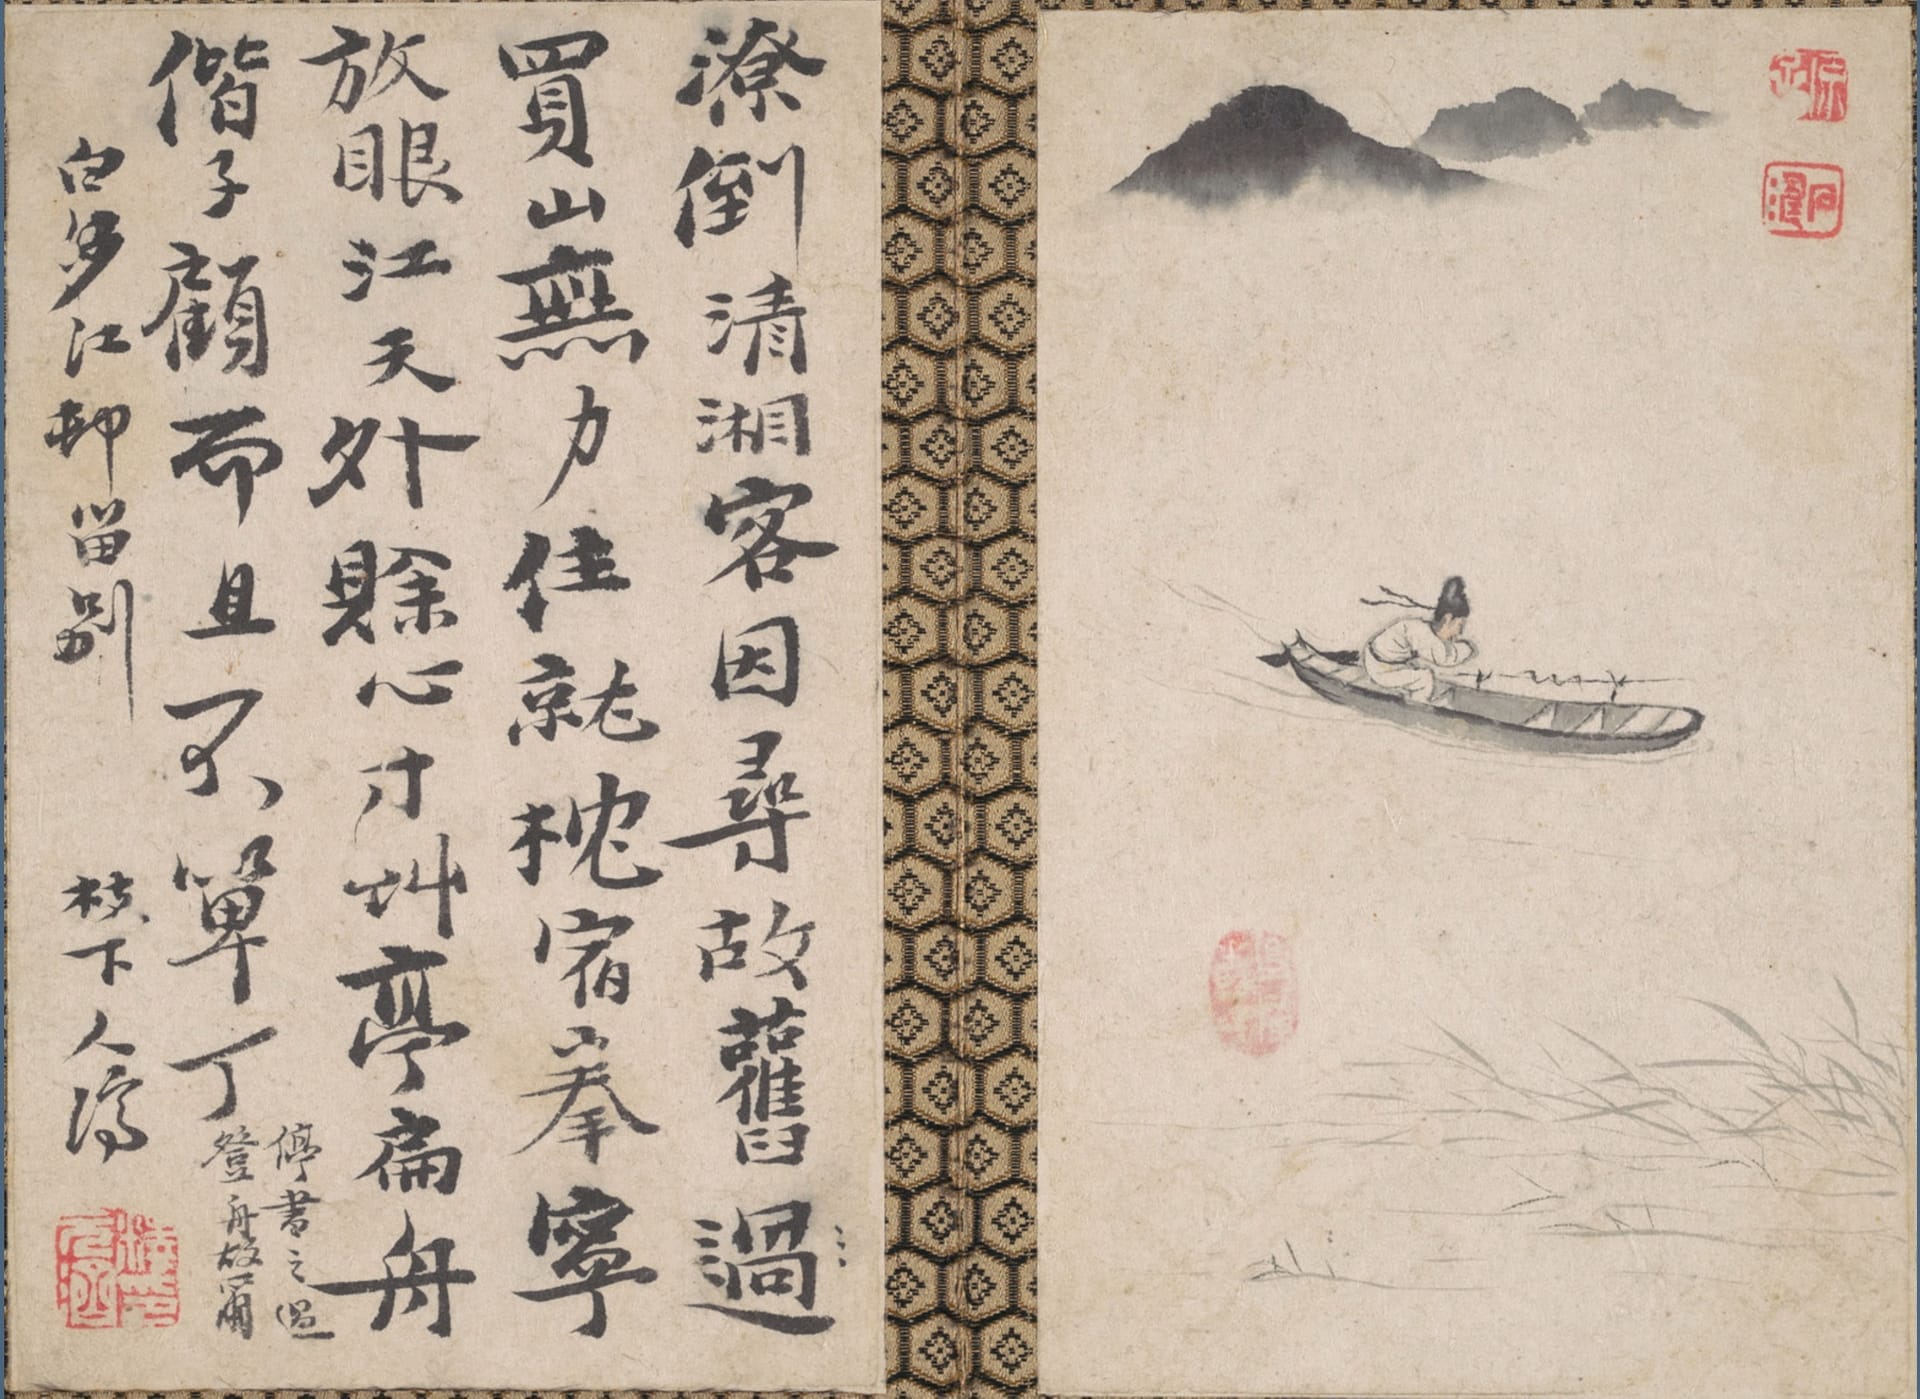 潦倒清湘客因尋故舊過
買山無力住就枕宿拳寧
放眼江天外賒心寸艸亭扁舟
偕子顧而且不單丁
停書之過
登舟故爾
白沙江邨留別
枝下人濟